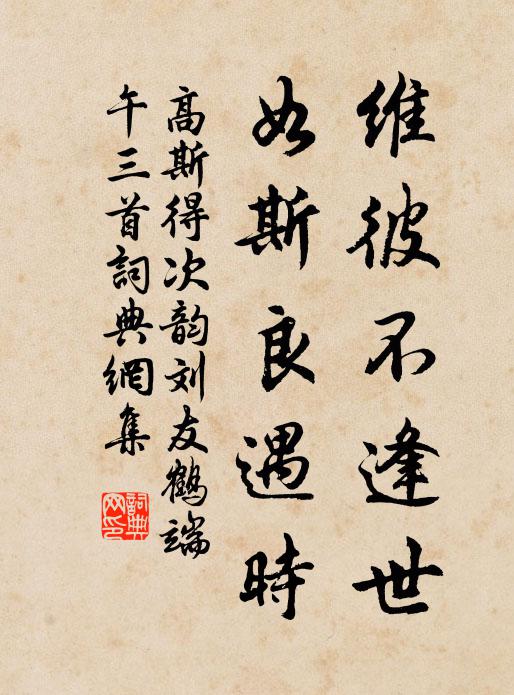 维彼不逢世
如斯良遇時
高斯得次韵刘友鹤端
午三首詞典網集
詞典
网印